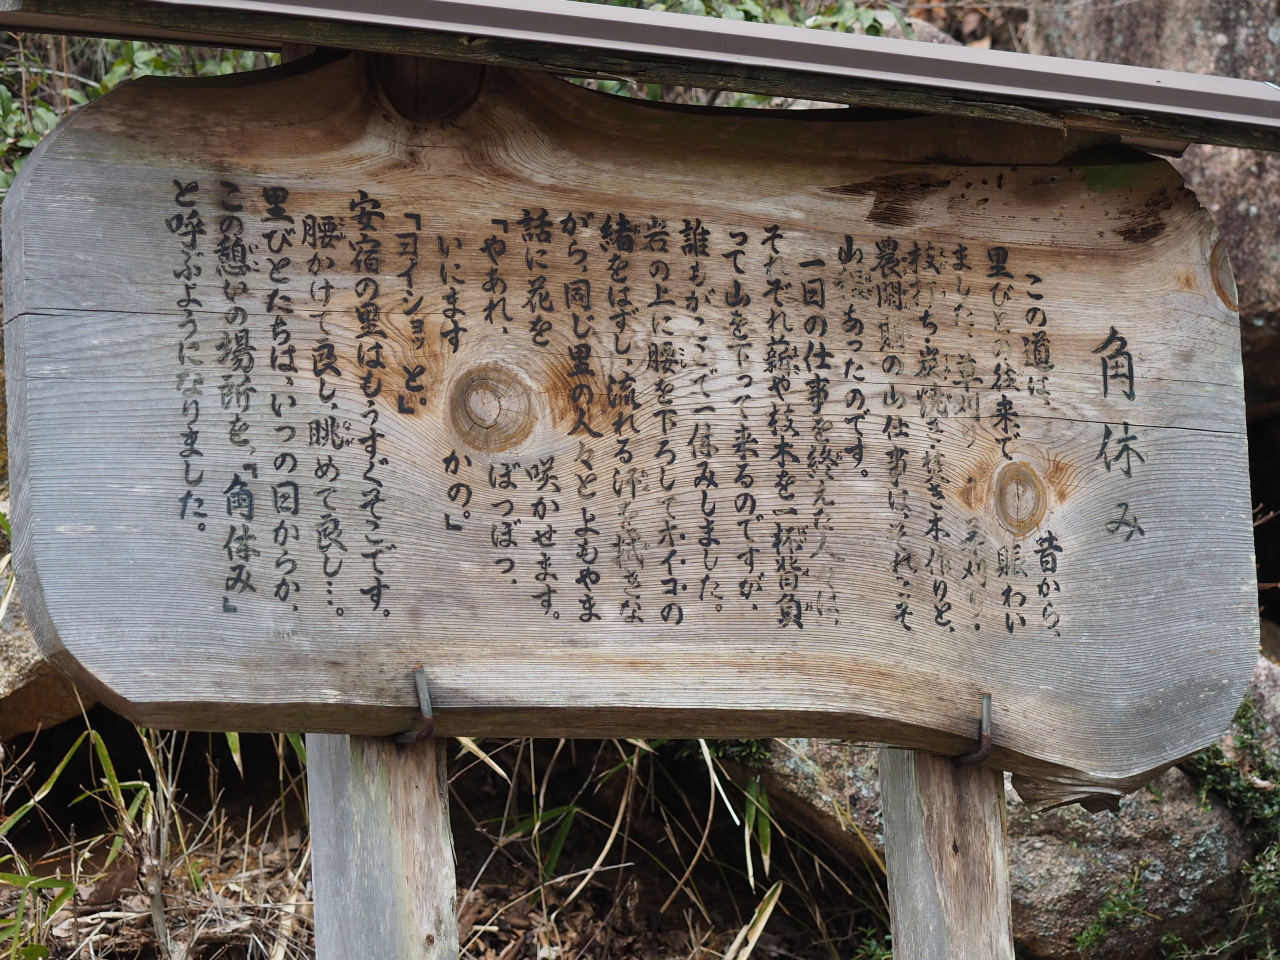 角休み
この道は、昔から、
里びとの往来で賑わい
ました。草刈り・柴刈り・
枝打ち・炭焼き・焚き木作りと、
農閑期の山仕事はそれこそ
山ほどあったのです。
一日の仕事を終えた人々は、
それぞれ薪や枝木を一杯背負
って山を下って来るのですが、
誰もがここで一休みしました。
岩の上に腰を下ろしてホイコの
緒をはずし、流れる汗を拭きな
がら、同じ里の人々とよもやま
話に花を咲かせます。
「やあれ、ぼつぼつ、
いにますかの。」
「ヨイショッと。」
安宿の里はもうすぐそこです。
腰かけて良し、眺めて良し…。
里びとたちは、いつの日からか、
この憩いの場所を、『角休み』
と呼ぶようになりました。